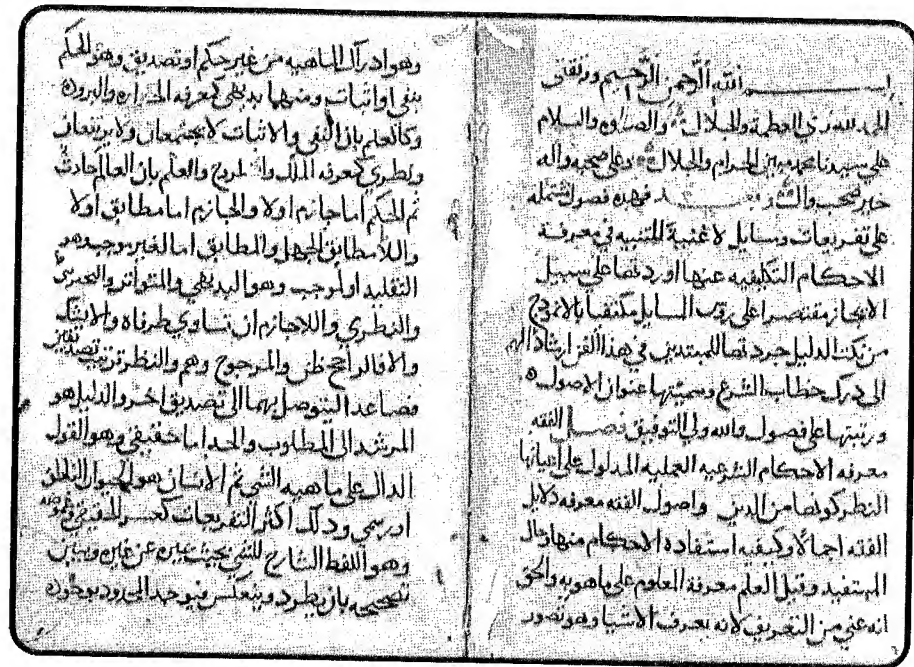 بسم الله الرحمن الرحيم
الحمد لله ذي العظمة والجلال والصلوة والسلام
على سيدنا محمد مبين الحرام والحلال وعلى صحبه واله
خير صحب و فهده فصول مشتمله
على تفريعات ومسايل لا غنية للمتنبه في معرفة
الاحكام التكليفيه عنها اوردتها على سبيل
الايجاز مقتصرا على روس المسايل مكتفيا بالانموذج
من نكت الدليل جردتها للمبتدين في هذا الفن ارشادا لهم
الى درك خطاب الشرع وسميتها عنوان الاصول
ورتبتها على فصول والله ولي التوفيق فصل الفقه
معرفه الاحكام الشرعيه العمليه المدلول على اعيانها
النظر كونها من الدين واصول الفقه معرفه دلايل
الفقه اجمالا وكيفيه استفاده الاحكام منها وحال
المستفيد وقيل العلم معرفة المعلوم على ما هو به والحق
انه غني من التعريف لانه به تعرف الاشيا وهو تصور
وهو ادراك الماهيه من غير حكم او تصديق وهو الحكم
بنفي او اثبات ومنهما بديهي كمعرفه الحراره والبروده
وكالعلم بان النفي والاثبات لا يجتمعان ولا يرتفعان
ونظري كمعرفه الملك والروح والعلم بان العالم حادث
ثم الحكم اما جازم اولا والجازم اما مطابق اولا
واللا مطابق الجهل والمطابق اما لغير موجب وهو
التقليد او لموجب وهو البديهي والمتواتر والتجربي
والنظري واللاجازم ان تساوي طرفاه والا شك
والا فالراجح ظن والمرجوح وهم والنظر ترتيب تصديقين
فصاعدا ليتوصل بهما الى تصديق اخر والدليل هو
المرشد الى المطلوب والحد اما حقيقي وهو القول
الدال على ماهيه الشي الانسان هو الحيوان الناطق
او رسمي وذلك اكثر التعريفات كعسر الحقيقي
وهو اللفظ الشارح للشي بحيث يميزه عن غيره
تصحيحه بان يطرد وينعكس فيوجد المحدود بوجوده